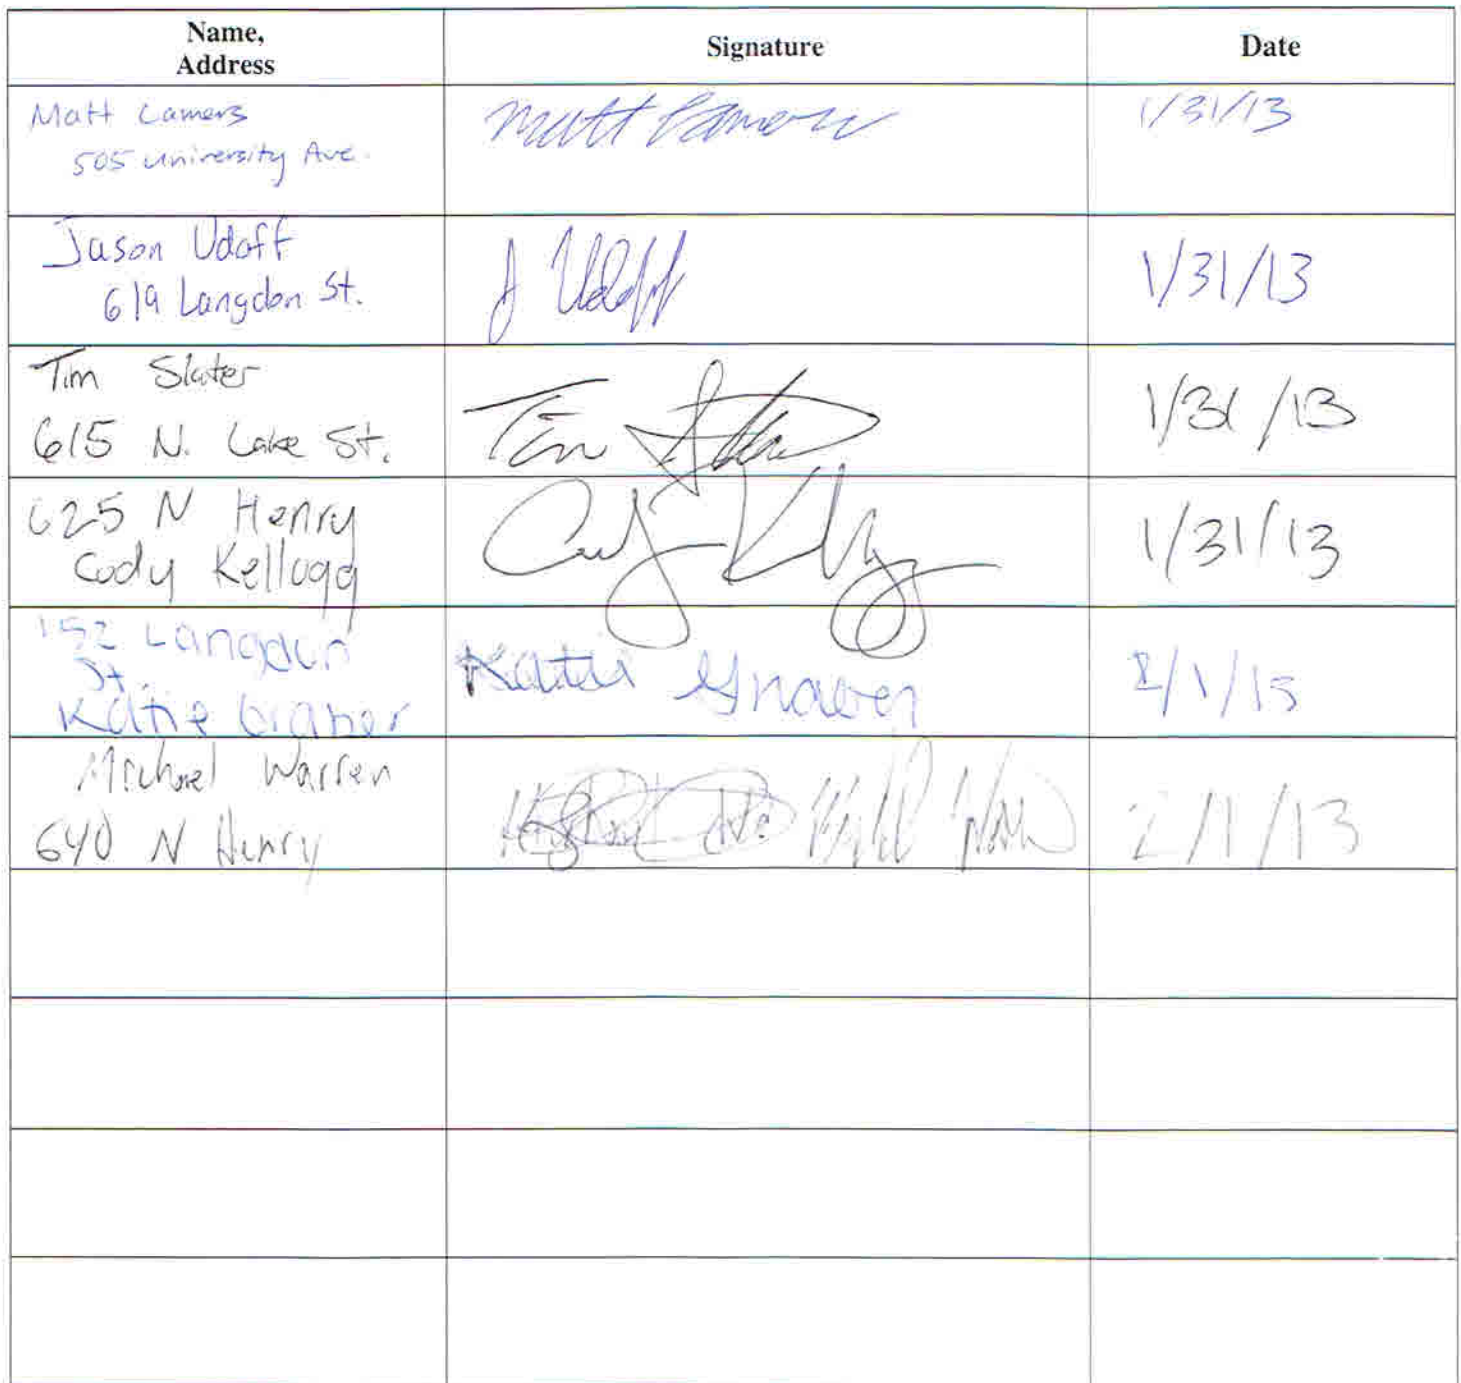 Name,
Address
Signature
Date
Matt Lamers
505 University Ave.
Matt Lamers
1/31/13
Jason Udoff
619 Langdon St.
J Udoff
1/31/13
Tim Slater
615 N. Lake St.
Tim Slater
1/31/13
625 N Henry
Cody Kellogg
Cody Kellogg
1/31/13
152 Langdon
St.
Katie Graber
Katie Graber
2/1/13
Michael Warren
640 N Henry
2/1/13